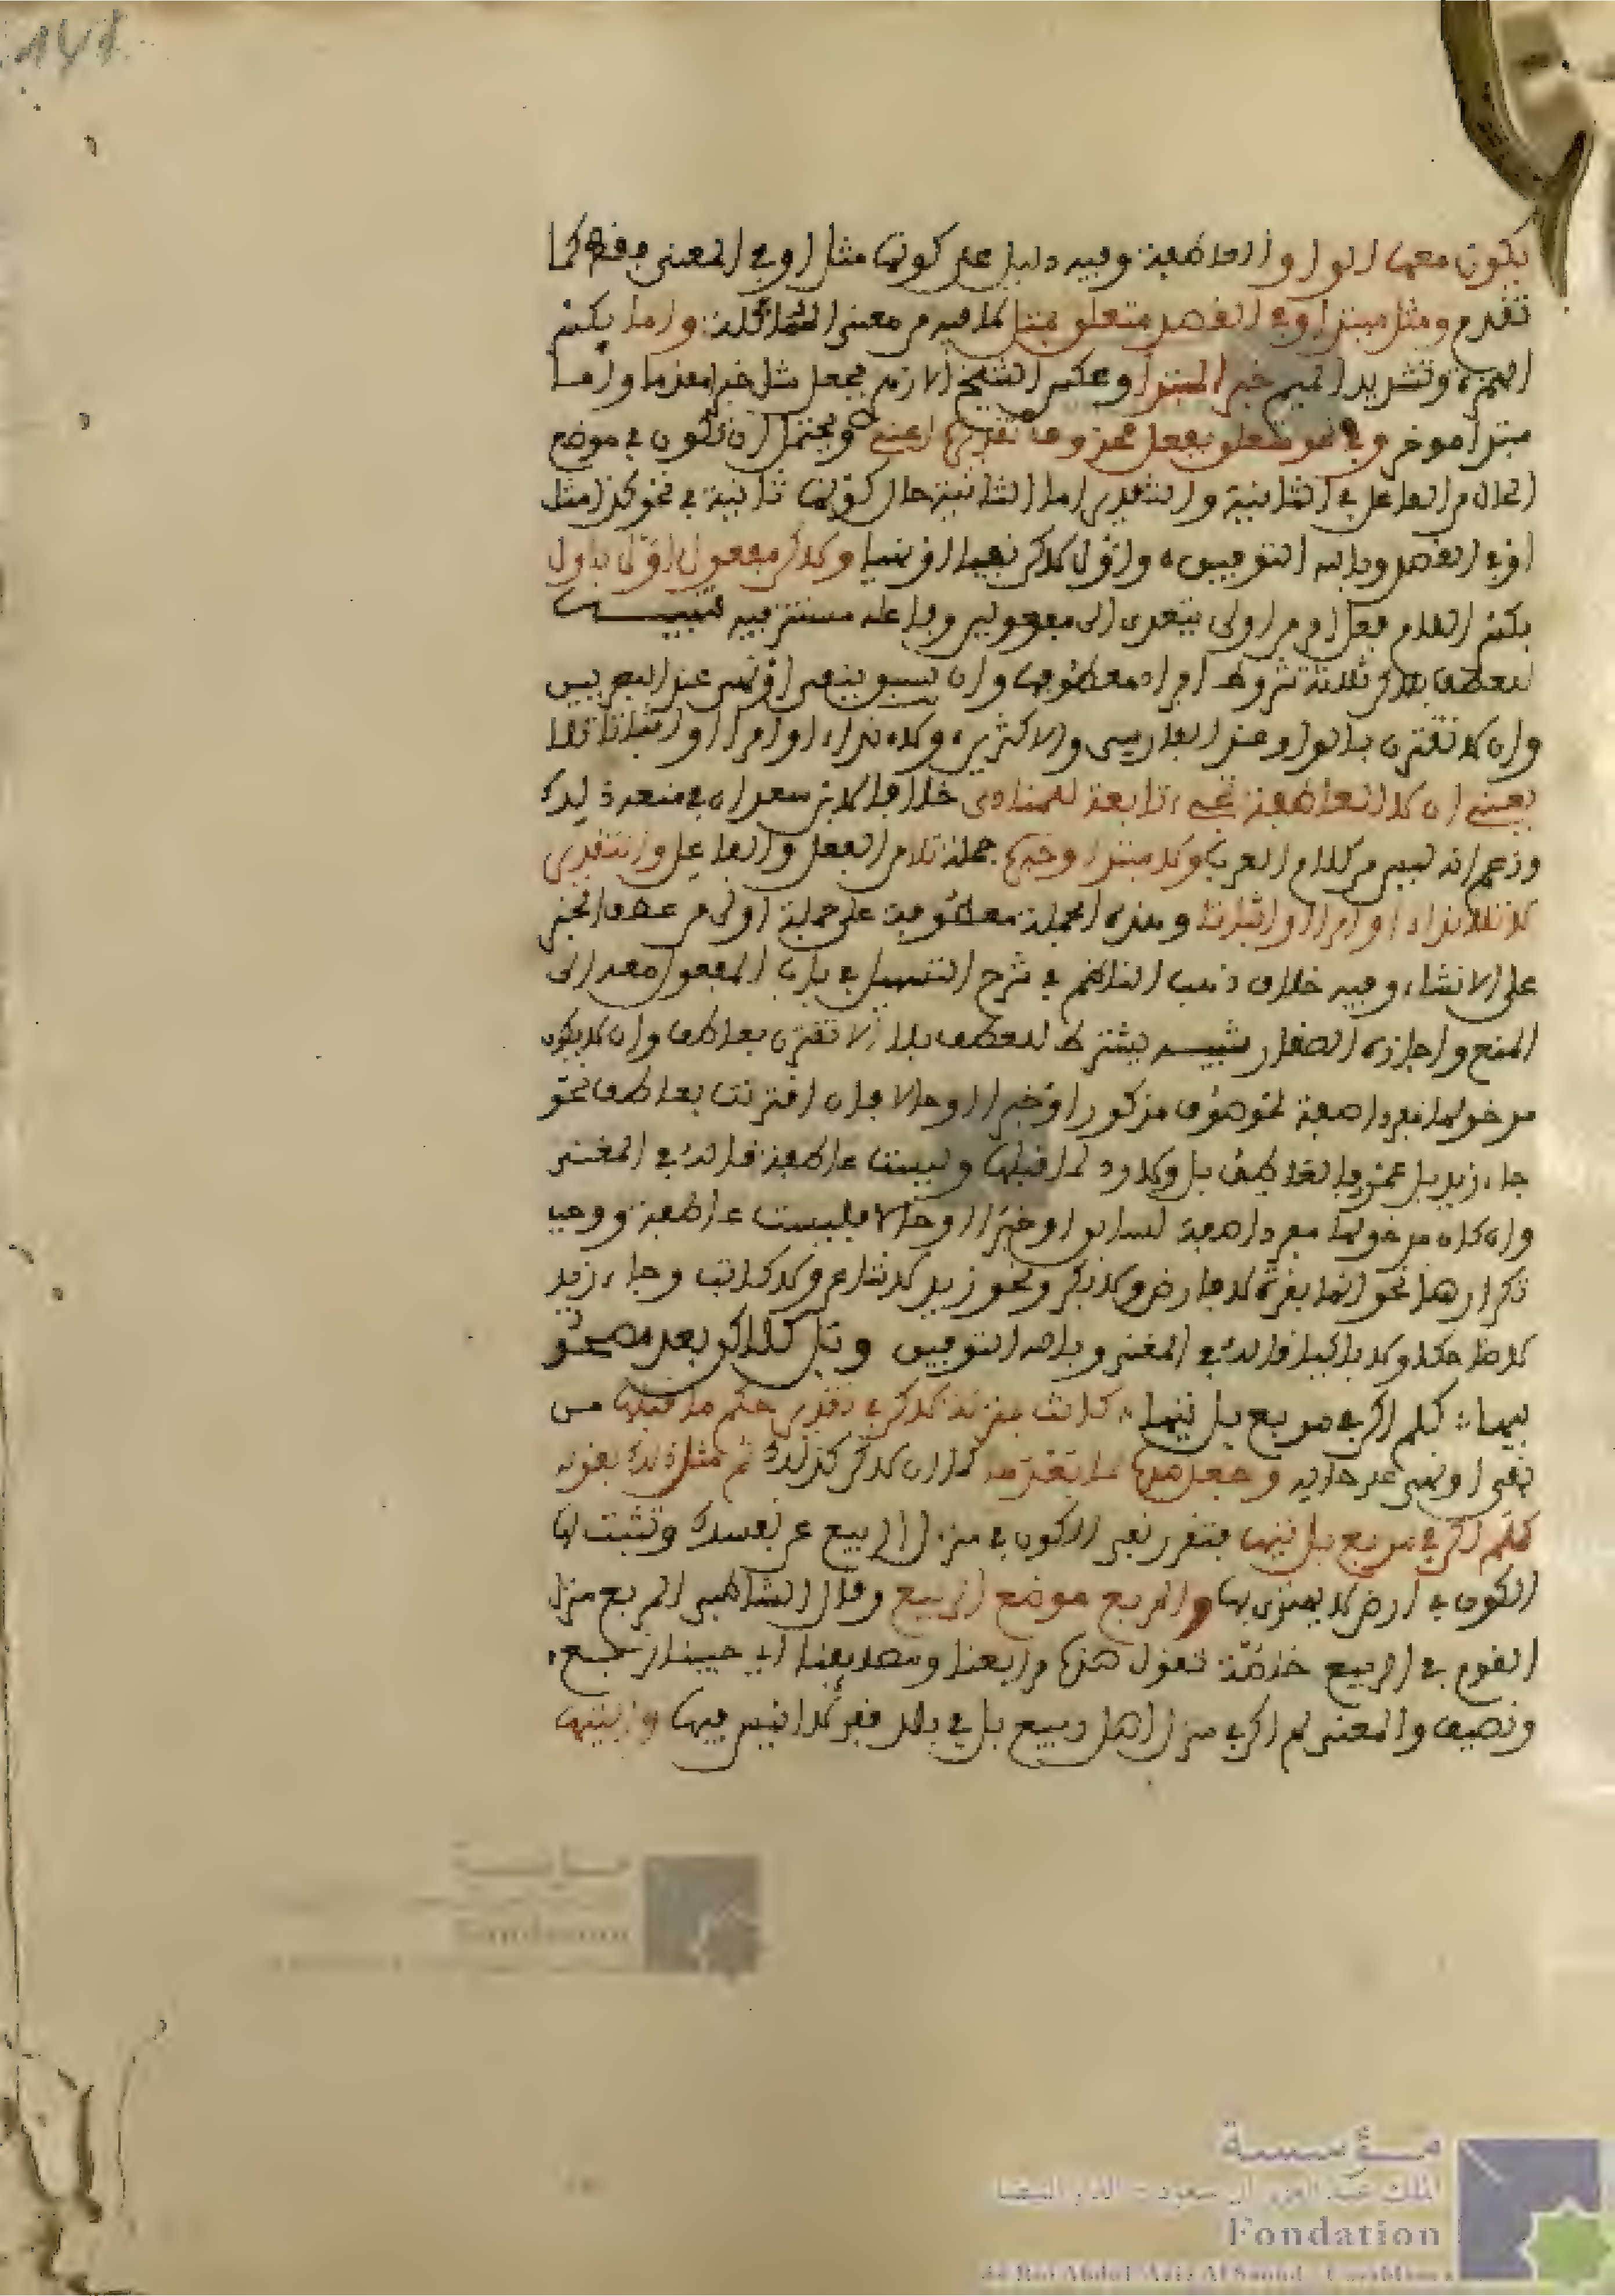 يكون معها الواو العاطفة وفيه دليل على كونها مثل او في المعنى فقط كما
تقدم ومثل مبتدا وفي القصد متعلق بمثل لما فيه من معنى المماثلة واما بكسر
الهمزة وتشديد الميم خبر المبتدا وعكس الشيخ الازهري فجعل مثل خبرا مقدما واما
مبتدا موخر وفي نحو متعلق بفعل محذوف تقديره اعني ويحتمل ان تكون في موضع
الحال من الفاعل في الثانية والتقدير اما الثانية حال كونها ثانية في نحو كذا مثل
او في القصد وبالله التوفيق واول لاكن نفيا او نهيا ولاكن مفعول اول باول
بكسر اللام فعل امر من اولى يتعدى الى مفعولين وفاعله مستتر فيه تنبيه
للعطف بلاكن ثلاثة شروط افراد معطوفها وان تسبق بنفي او نهي عند البصريين
وان لا تقترن بالواو عند الفارسي والاكثرين ولا نداء او امرا او اثباتا تلا
يعني ان لا العاطفة تجيء تابعة للمنادى خلافا لابن سعدان في منعه ذلك
وزعم انه ليس من كلام العرب ولا مبتدا وخبره جملة تلا من الفعل والفاعل والتقدير
لا تلا نداء او امرا او اثباتا وهذه الجملة معطوفة على جملة اولى من عطف الخبر
على الانشاء وفيه خلاف ذهب الناظم في شرح التسهيل في باب المفعول معه الى
المنع واجازه الصفار تنبيه يشترط للعطف بلا الا تقترن بعاطف وان لا يكون
مدخولها مفردا صفة لموصوف مذكور او خبرا او حالا فان اقترنت بعاطف نحو
جاء زيد بل عمرو فالعاطف بل ولا رد لما قبلها وليست عاطفة قاله في المغني
وان كان مدخولها مفردا صفة لسابق او خبرا او حالا فليست عاطفة ووجب
تكرارها نحو انها بقرة لا فارض ولا بكر ونحو زيد لا شاعر ولا كاتب وجاء زيد
لا ضاحكا ولا باكيا قاله في المغني وبالله التوفيق وبل كلاكن بعد مصحو
بيها كلم اكن في مربع بل تيها كانت بمنزلة لاكن في تقرير حكم ما قبلها من
نفي او نهي على حاله وجعل ضده لما بعده كما ان لاكن كذلك ثم مثل ذلك بقوله
كلم اكن في مربع بل تيها فتقرر نفي الكون في منزل الربيع عن نفسك وتثبت لها
الكون في ارض لا يهتدى بها والمربع موضع الربيع وقال الشاطبي المربع منزل
القوم في الربيع خاصة تقول هذه مرابعنا ومصايفنا اي حيث نرتبع
ونصيف والمعنى لم اكن في منزل اهل ربيع بل في بلد قفر لا انيس فيها والتيها
مؤسسة
الملك عبد العزيز آل سعود - الدار البيضاء
Fondation
du Roi Abdul-Aziz Al Saoud - Casablanca